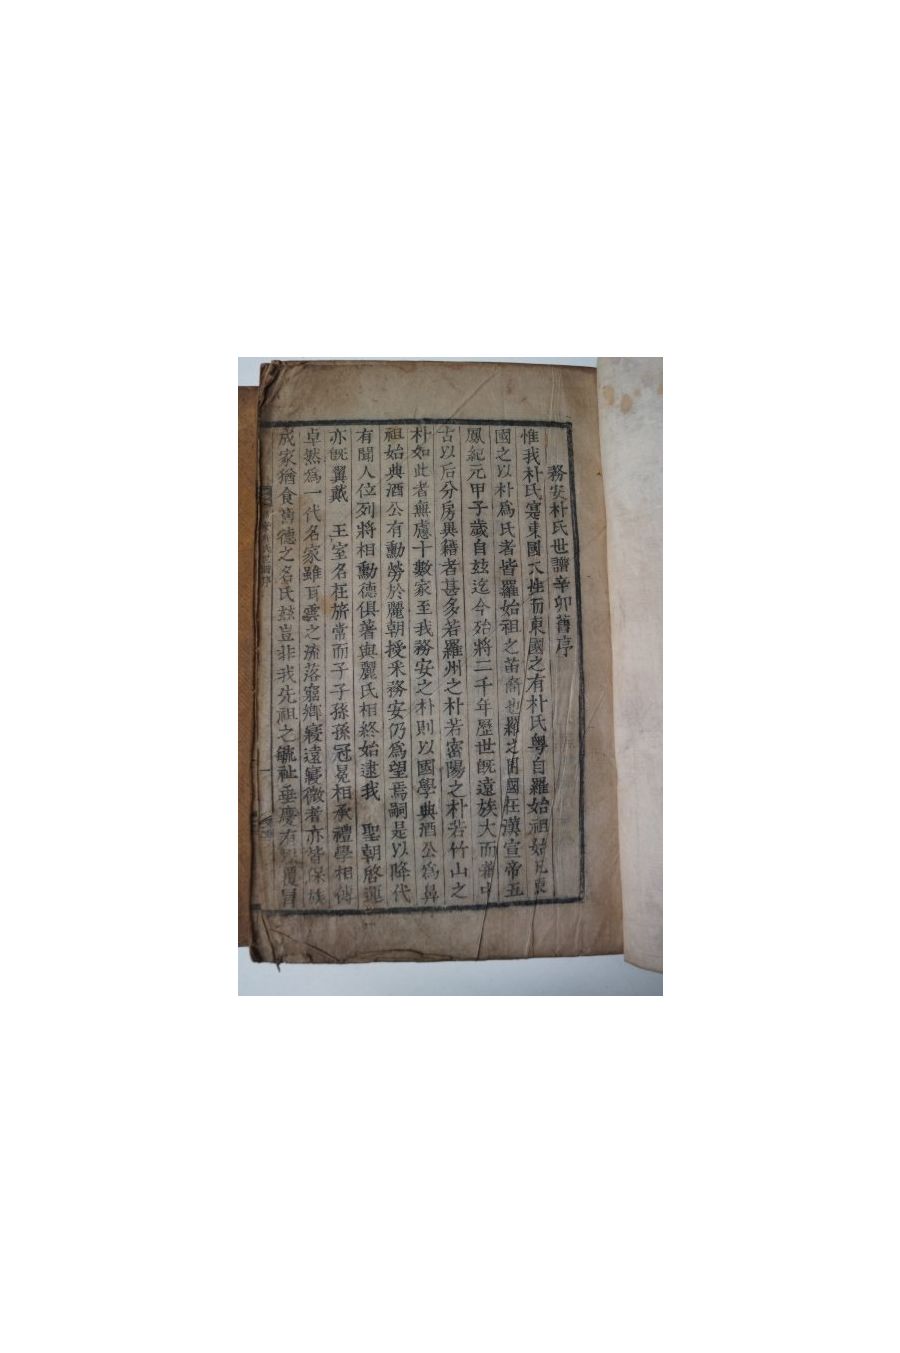 務安朴氏世譜辛卯舊序
惟我朴氏寔東國大姓而東國之有朴氏粤自羅始祖始凡東
國之以朴爲氏者皆羅始祖之苗裔也羅之開國在漢宣帝五
鳳紀元甲子歲自玆迄今殆將二千年歷世旣遠族大而蕃中
古以后分房異籍者甚多若羅州之朴若密陽之朴若竹山之
朴如此者無慮十數家至我務安之朴則以國學典酒公爲鼻
祖始典酒公有勳勞於麗朝授采務安仍爲望焉嗣是以降代
有聞人位列將相勳德俱著與麗氏相終始逮我 聖朝啓運
亦旣翼戴 王室名在旂常而子子孫孫冠冕相承禮學相傳
卓然爲一代名家雖耳雲之流落窮鄕寢遠寢微者亦皆保族
成家猶食舊德之名氏玆豈非我先祖之毓祉垂慶有以覆冒